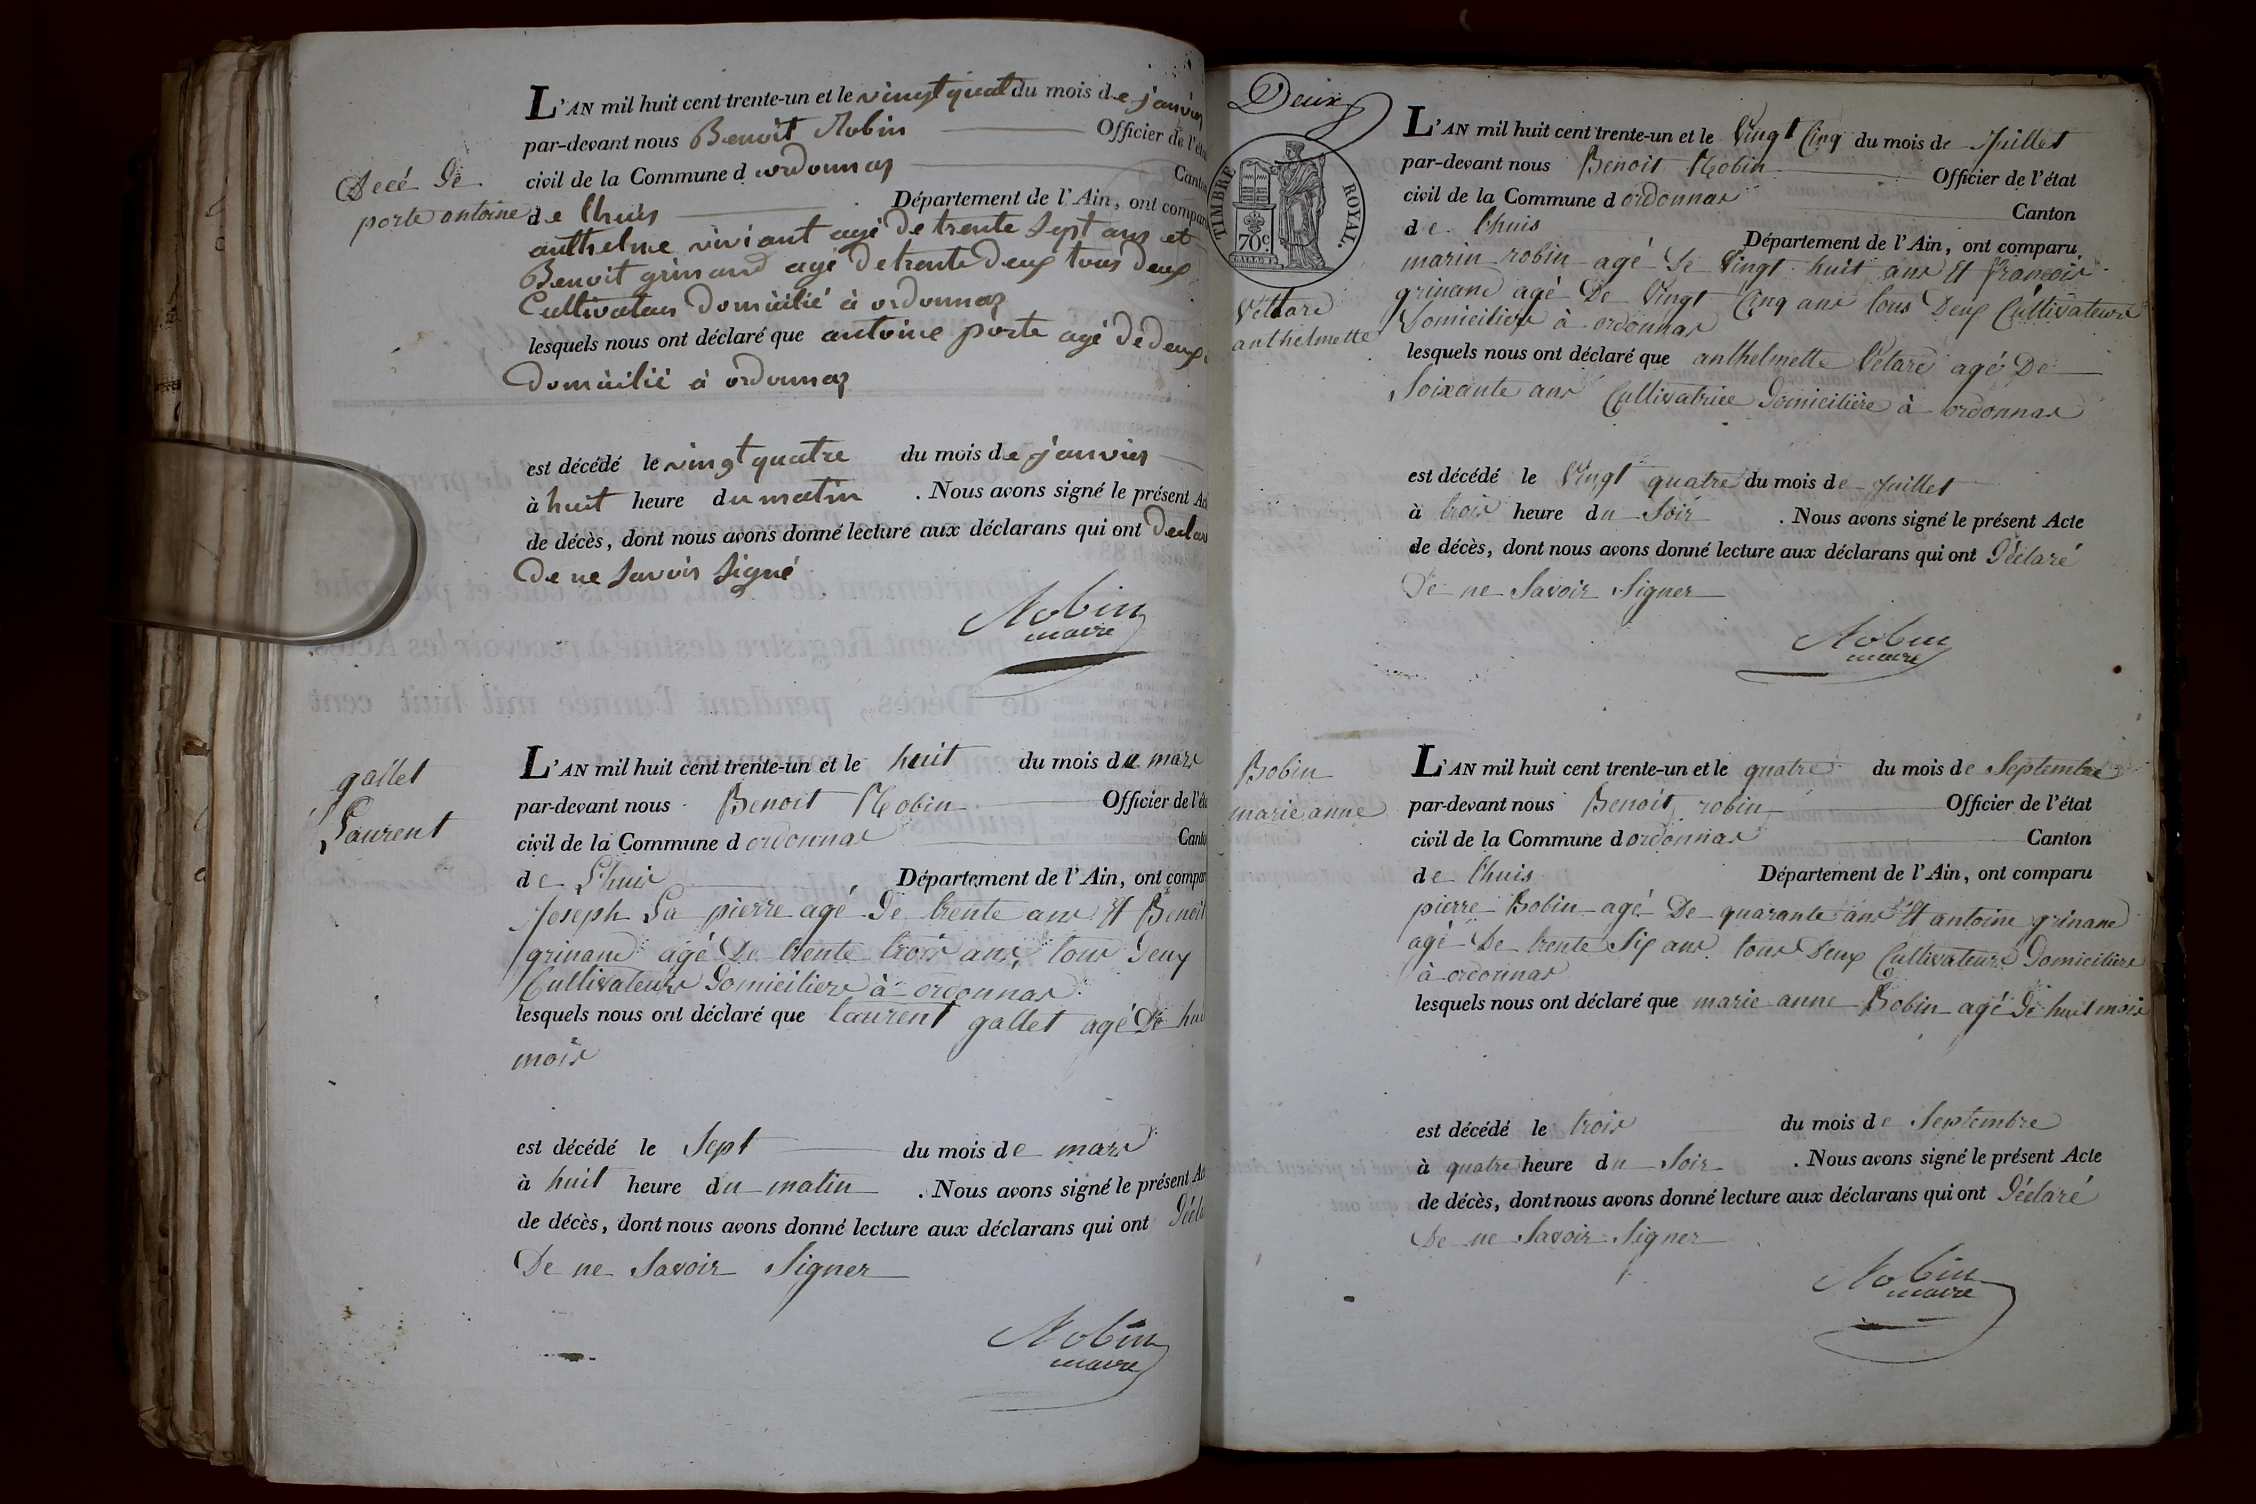 L'AN mil huit cent trente-un et le vingt quat du mois de janvier
par-devant nous Benoit Robin Officier de l'éta
civil de la Commune d ordonnaz Canto
de Lhuis Département de l'Ain, ont compar
Decé de
porte antoine
anthelme viviant agé de trente sept ans et
Benoit grinand agé de trente deux tous deux
Cultivateur domicilié à ordonnaz
lesquels nous ont déclaré que antoine porte agé de deux
domicilié à ordonnaz
est décédé le vingt quatre du mois de janvier
à huit heure du matin . Nous avons signé le présent Ac
de décès, dont nous avons donné lecture aux déclarans qui ont declar
de ne savoir signé
Robin
maire
gallet
Laurent
L'AN mil huit cent trente-un et le huit du mois de mars
par-devant nous Benoit Robin Officier de l'éta
civil de la Commune d ordonnas Canto
de Lhuis Département de l'Ain, ont compar
Joseph La pierre agé de trente ans Et Benoit
grinand agé De trente trois ans, tous deux
Cultivateurs Domiciliers à ordonnas
lesquels nous ont déclaré que laurent gallet agé De hui
mois
est décédé le Sept du mois de mars
à huit heure du matin . Nous avons signé le présent Ac
de décès, dont nous avons donné lecture aux déclarans qui ont Décla
De ne Savoir Signer
Robin
maire
Deux
TIMBRE ROYAL.
70c.
L'AN mil huit cent trente-un et le Vingt Cinq du mois de Juillet
par-devant nous Benoit Robin Officier de l'état
civil de la Commune d ordonnas Canton
de Lhuis Département de l'Ain, ont comparu
Vettard
anthelmette
marin robin agé de Vingt huit ans Et francois
grinand agé De Vingt Cinq ans tous Deux Cultivateurs
Domiciliers à ordonnas
lesquels nous ont déclaré que anthelmette Vétard agé De
Soixante ans Cultivatrice Domicilière à ordonnas
est décédé le Vingt quatre du mois de Juillet
à trois heure du Soir . Nous avons signé le présent Acte
de décès, dont nous avons donné lecture aux déclarans qui ont Déclaré
De ne Savoir Signer
Robin
maire
Bobin
marie anne
L'AN mil huit cent trente-un et le quatre du mois de Septembre
par-devant nous Benoit robin Officier de l'état
civil de la Commune d ordonnas Canton
de Lhuis Département de l'Ain, ont comparu
pierre Bobin agé De quarante ans Et antoine grinand
agé De trente Six ans tous Deux Cultivateurs Domiciliers
à ordonnas
lesquels nous ont déclaré que marie anne Bobin agé De huit mois
est décédé le trois du mois de Septembre
à quatre heure du Soir . Nous avons signé le présent Acte
de décès, dont nous avons donné lecture aux déclarans qui ont Déclaré
De ne Savoir Signer
Robin
maire